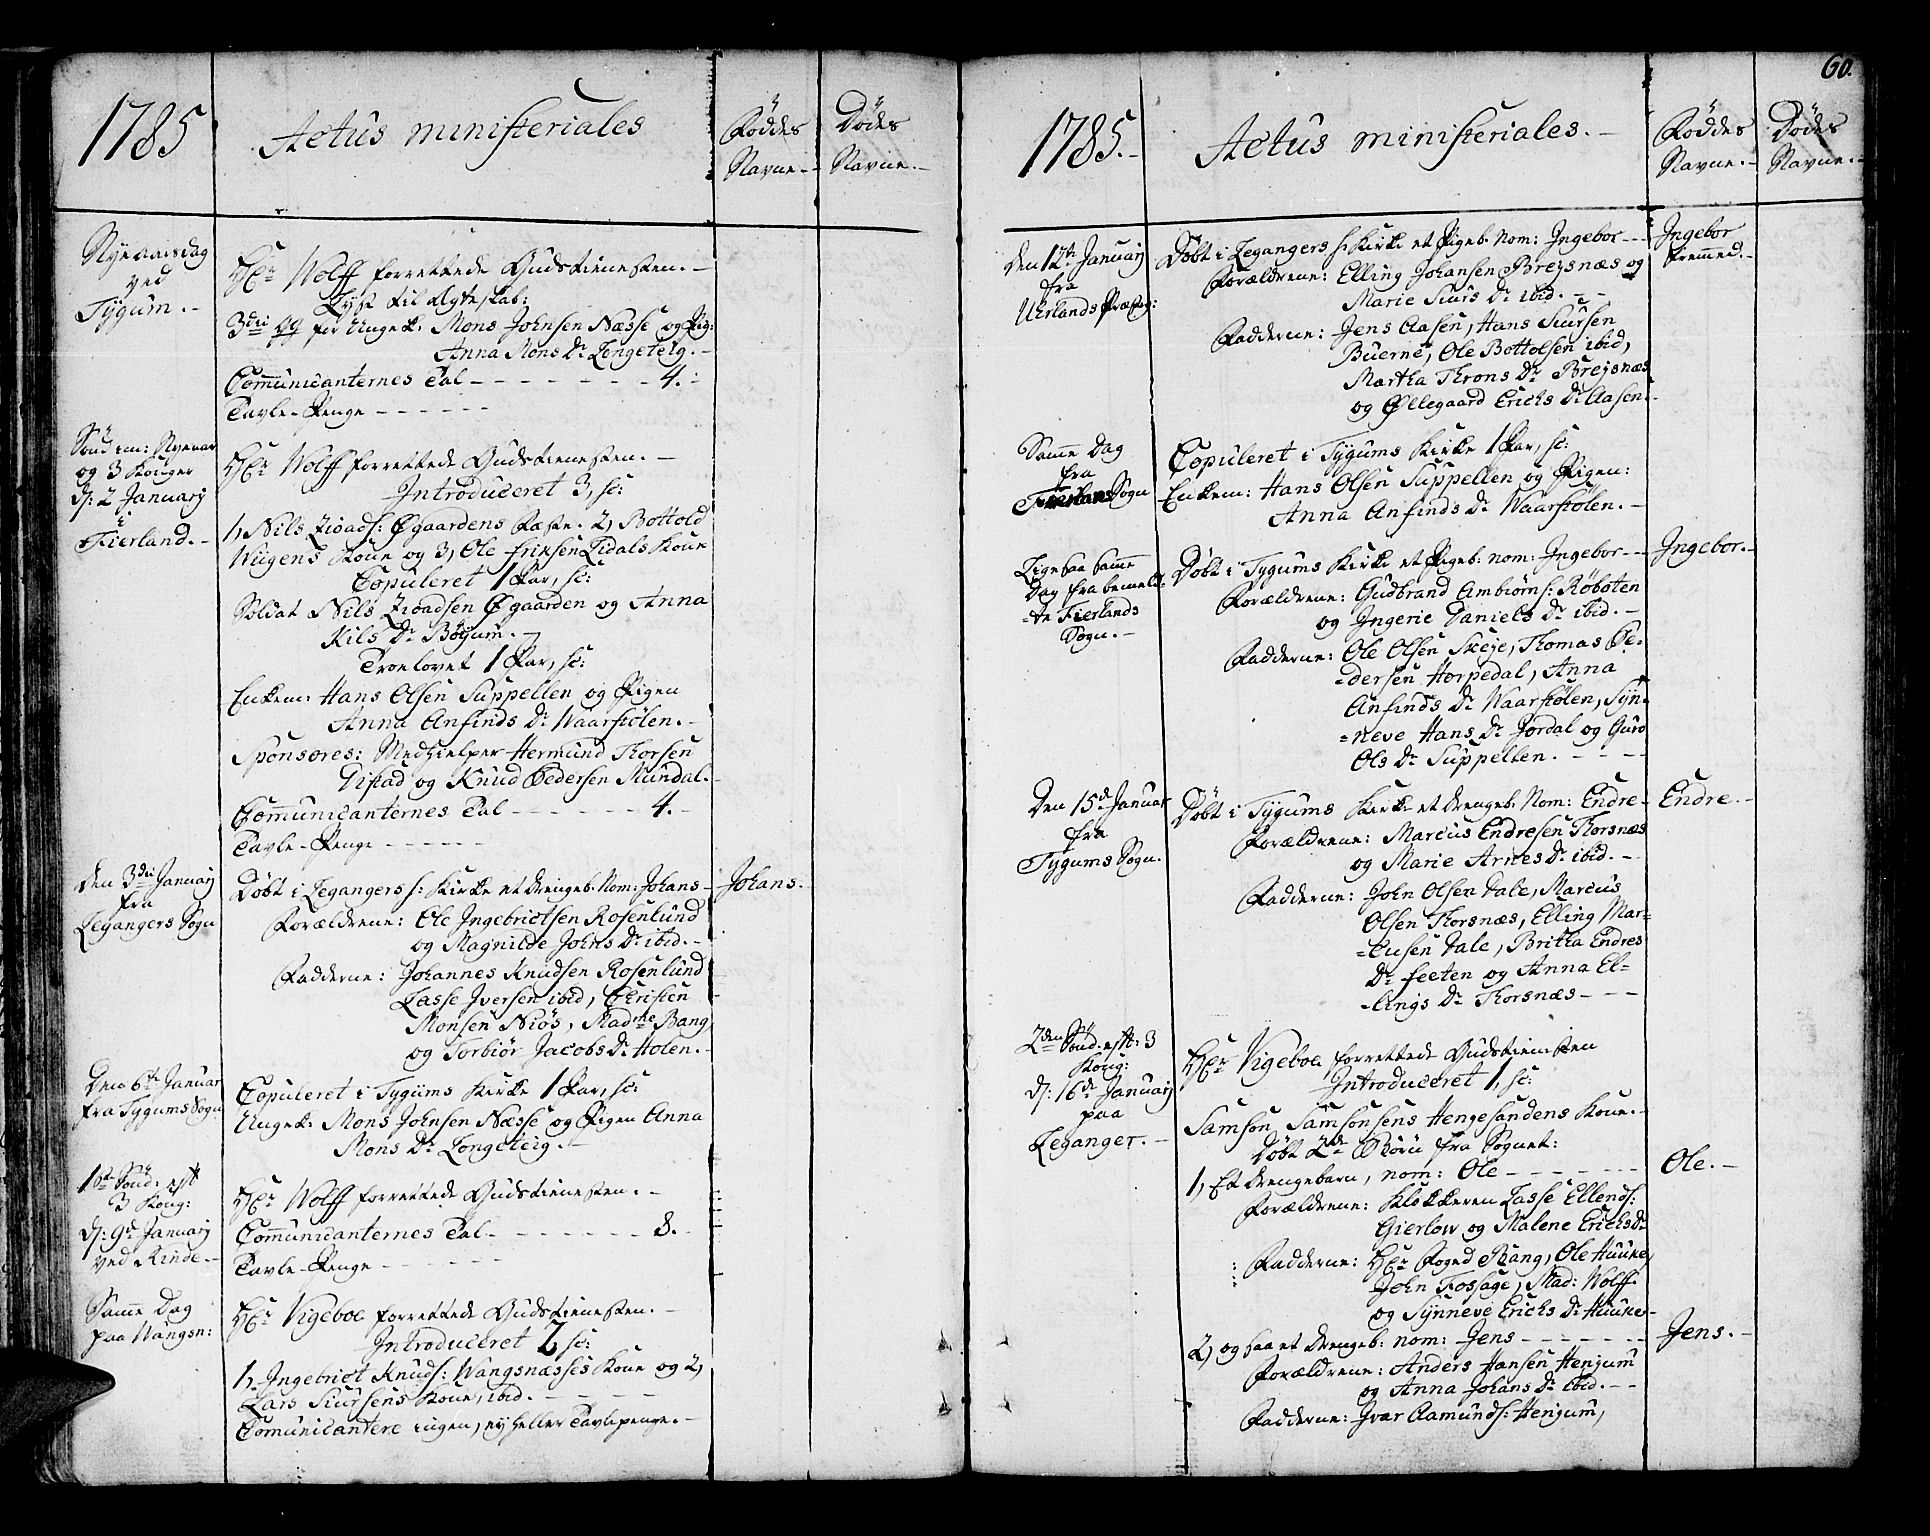 1785
Actus ministeriales
Føddes Navne.-
Dødes Navne.-
Nyeaarsdag
ved
Tygum.-
Hr. Wolff forrettede Gudstienesten.-
Lyst til Ægteskab:
3die Gg for Ungek. Mons Johnsen Næsse og Pig:
Anna Mons Dr. Longeteig.-
Communicanternes Tal - - - - - - - 4.-
Tavle-Penge - - - - - -
Sønd em: Nyeaar
og 3 Konger
d: 2 Januarij
i
Fierland.-
Hr. Wolff forrettede Gudstienesten.-
Introduceret 3, sc:
1, Nils Zioads: Øgaardens Fæste. 2, Bottold
Wiigens Kone og 3, Ole Eriksen Lidals Kone
Copuleret 1 Par, sc:
Soldat Nils Zioadsen Øgaarden og Anna
Nils Dr. Bøyum.-
Troelovet 1 Par, sc:
Enkem: Hans Olsen Suppellen og Pigen
Anna Anfinds Dr. Waarstølen.-
Sponsores: Medhielper Hermund Thorsen
Ugstad og Knud Pedersen Mundal.-
Communicanternes Tal - - - - - - - 4.-
Tavle-Penge - - - - - -
Den 3die Januarij
fra
Legangers Sogn
Døbt i Legangers s: Kirke et Drengeb. Nom: Johans-
Johans.-
Forældrene: Ole Ingebrictsen Rosenlund
og Magnilde Johns Dr. ibid.-
Fadderne: Johannes Knudsen Rosenlund
Lasse Iversen ibid, Christen
Monsen Niøs, Madme Bang
og Torbiør Jacobs Dr. Holen.-
Den 6te Januar
fra Tygums Sogn
Copuleret i Tygums Kirke 1 Par, sc:
Ungek: Mons Johnsen Næsse og Pigen Anna
Mons Dr. Longeteig.-
1ste Sønd: eft
3 Kong:
d: 9de Januarij
ved Rinde.-
Hr. Wolff forrettede Gudstienesten.-
Communicanternes Tal - - - - - - - 8.-
Tavle-Penge - - - - - -
Samme Dag
paa Wangsn:
Hr. Vigeboe forrettede Gudstienesten.-
Introduceret 2 sc:
1, Ingebrict Knuds: Wangsnæsses Kone og 2,
Lars Siursens Kone, ibid. - - - -
Communicantere ingen, ey heller Tavlepenge.-
60.
1785.-
Actus ministeriales.-
Føddes Navne.-
Dødes Navne.-
Den 12te Januarij
fra
Urlands Præsteg:
Døbt i Legangers s: Kirke et Pigeb. Nom: Ingebor - - -
Ingebor
fremmed.-
Forældrene: Elling Johansen Breysnæs og
Marie Siurs Dr. ibid.- -
Fadderne: Jens Aasen, Hans Siursen
Buerne, Ole Bottolsen ibid,
Martha Throns Dr. Breysnæs
og Øllegaard Erichs Dr. Aasen.-
Samme Dag
fra
Fierlans Sogn
Copuleret i Tygums Kirke 1 Par, sc:
Enkem: Hans Olsen Suppellen og Pigen:
Anna Anfinds Dr. Waarstølen.-
Ligesaa samme
Dag fra bemeld-
-te Fierlands
Sogn.-
Døbt i Tygums Kirke et Pigeb. nom: Ingebor - -
Ingebor.-
Forældrene: Gudbrand Ambiørns: Røboten
og Ingerie Daniels Dr. ibid.-
Fadderne: Ole Olsen Skeje, Thomas Pe-
-dersen Horpedal, Anna
Anfinds Dr. Waarstølen, Syn-
-neve Hans Dr. Jordal og Guro
Ols Dr. Suppellen.- - - -
Den 15de Januar
fra
Tygums Sogn.
Døbt i Tygums Kirke et Drengeb. Nom: Endre-
Endre.-
Forældrene: Marcus Endresen Thorsnæs
og Marie Arnes Dr. ibid.-
Fadderne: John Olsen Dale, Marcus
Olsen Thorsnæs, Elling Mar-
-cusen Dale, Britha Endres
Dr. Feeten og Anna El-
-lings Dr. Thorsnæs - - -
2den Sønd. eft: 3
Kong:
d: 16de Januarij
paa
Leganger.-
Hr. Vigeboe forrettede Gudstienesten
Introduceret 1, sc:
Samson Samsonsens Hengesandens Kone.-
Døbt 2de Børn fra Sognet:
1, Et Drengebarn, nom: Ole - - - - - -
Ole.-
Forældrene: Klokkeren Lasse Ellends:
Gierlow og Malene Erichs Dr.
Fadderne: Hr. Foged Bang, Ole Huuke,
John Fossage, Mad: Wolff
og Synneve Erichs Dr. Huuke-
2, og saa et Drengeb: nom: Jens - - - - - -
Jens.-
Forældrene: Anders Hansen Henjum
og Anna Johans Dr. ibid.- -
Fadderne: Ivar Aamunds: Henjum,